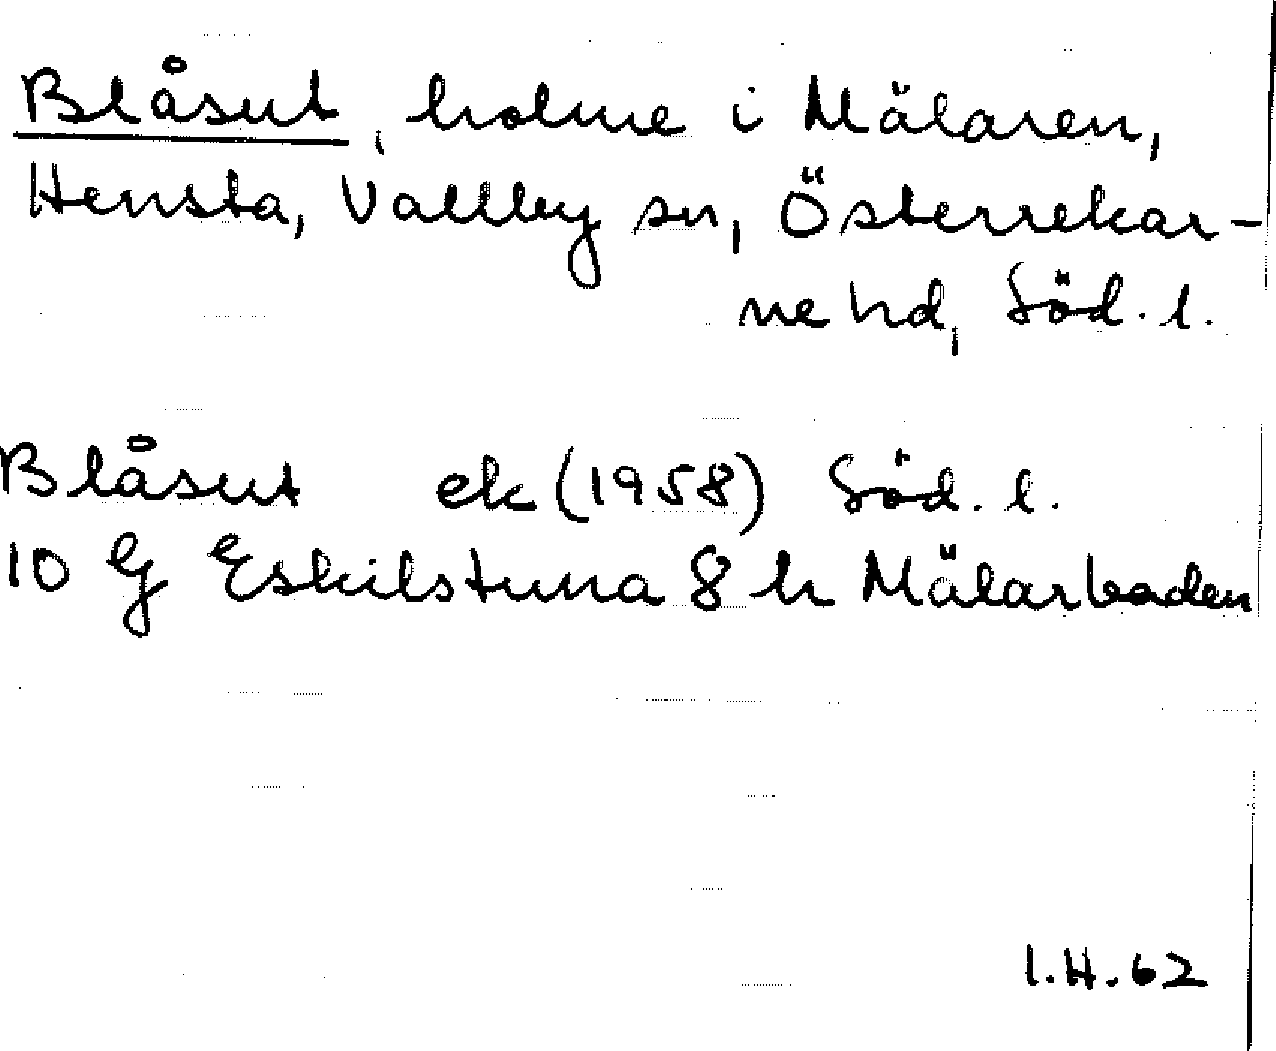 Blåsut, holme i Mälaren,
Hensta, Vallby sn, Österrekar-
ne hd, Söd. l.
Blåsut ek (1958) Söd. l.
10 G Eskilstuna 8 h Mälarbaden
I.H. 62